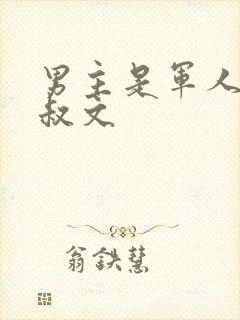 男主是军人
叔文
翁鉄慧